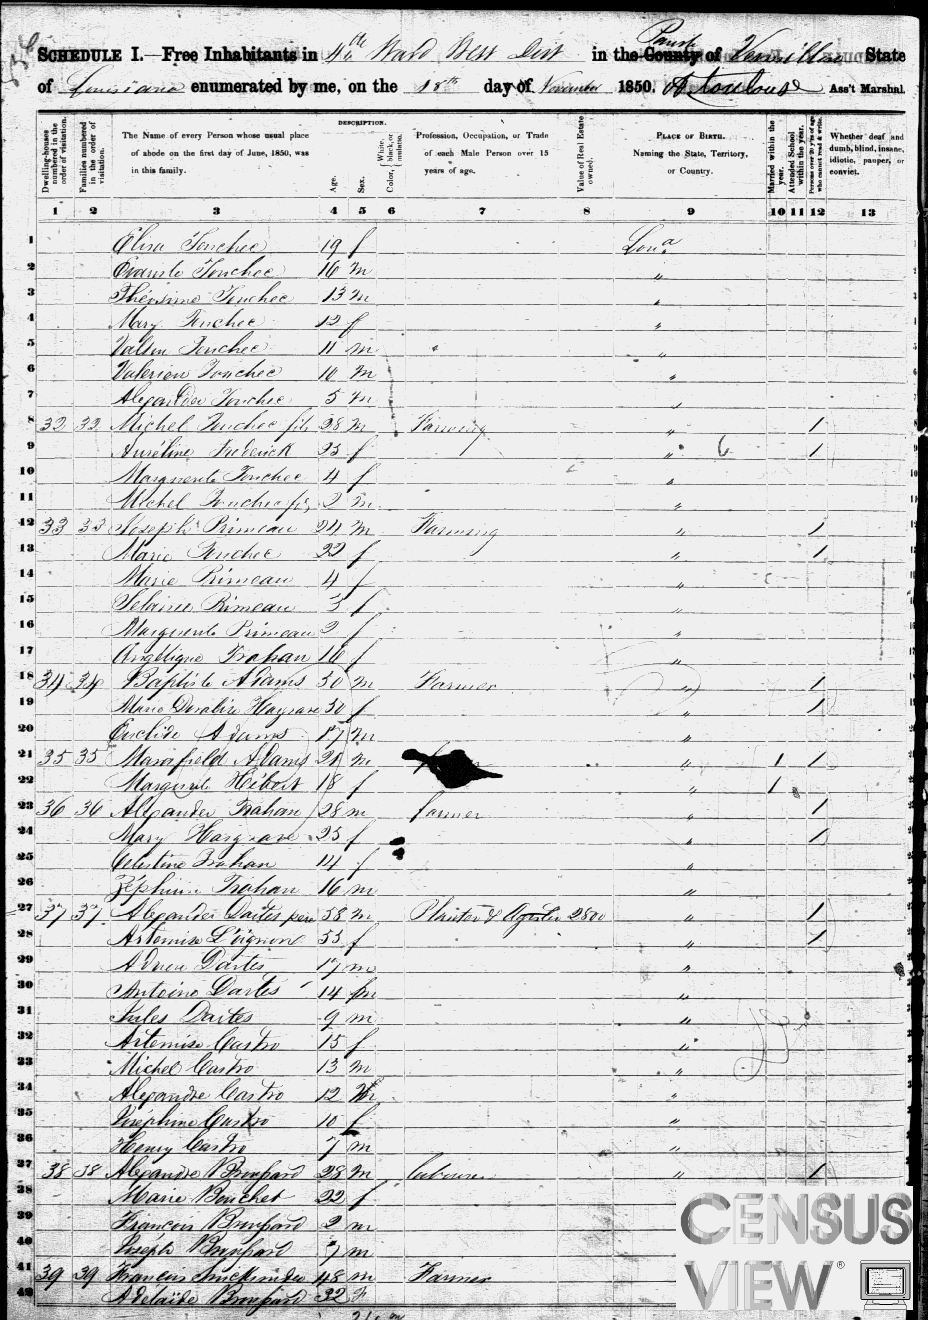 SCHEDULE I.—Free Inhabitants in 4th Ward West Dist in the County of Parish Vermillion State
of Louisiana enumerated by me, on the 18th day of November 1850. Ass't Marshal.
Dwelling-house numbered in the order of visitation.
Families numbered in the order of visitation.
The Name of every Person whose usual place of abode on the first day of June, 1850, was in this family.
DESCRIPTION.
Age.
Sex.
Color, { White, black, or mulatto.
Profession, Occupation, or Trade of each Male Person over 15 years of age.
Value of Real Estate owned.
PLACE OF BIRTH. Naming the State, Territory, or Country.
Married within the year.
Attended School within the year.
Persons over 20 y'rs of age who cannot read & write.
Whether deaf and dumb, blind, insane, idiotic, pauper, or convict.
1 2 3 4 5 6 7 8 9 10 11 12 13
1 Elisa Touchec 19 f Loua
2 Evariste Touchec 16 m "
3 Théosime Touchec 13 m "
4 Mary Touchec 12 f "
5 Valsin Touchec 11 m "
6 Valerien Touchec 10 m "
7 Alexandre Touchec 5 m "
8 32 32 Michel Touchec fils 28 m Farming " 1
9 Auréline Frederick 25 f " 6 1
10 Marguerite Touchec 4 f "
11 Michel Touchec fils 2 m "
12 33 33 Joseph Primeau 24 m Farming " 1
13 Marie Touchec 22 f " 1
14 Marie Primeau 4 f "
15 Primeau 3 f "
16 Marguerite Primeau 2 f "
17 Angélique Trahan 16 f "
18 34 34 Baptiste Adams 50 m Farmer " 1
19 Marie Hargrave 50 f " 1
20 Euclide Adams 17 m "
21 35 35 Adams 21 m " 1 1
22 Marguerite Hébert 18 f " 1
23 36 36 Alexander Trahan 28 m farmer " 1
24 Mary Hargrave 25 f " 1
25 Celestine Trahan 14 f "
26 Zéphirin Trahan 16 m "
27 37 37 Alexander Dartes pere 58 m Planter & 2800 " 1
28 Artemise 55 f " 1
29 Dartes 17 m "
30 Antoine Dartes 14 m "
31 Jules Dartes 9 m "
32 Artemise Castro 15 f "
33 Michel Castro 13 m "
34 Alexandre Castro 12 m "
35 Joséphine Castro 10 f "
36 Henry Castro 7 m "
37 38 38 Alexandre Broussard 28 m Labourer " 1
38 Marie Bouchet 22 f
39 Francois Broussard 2 m
40 Joseph Broussard 7 m
41 39 39 Francis 48 m Farmer
42 Adelaïde Broussard 32 f
CENSUS
VIEW®